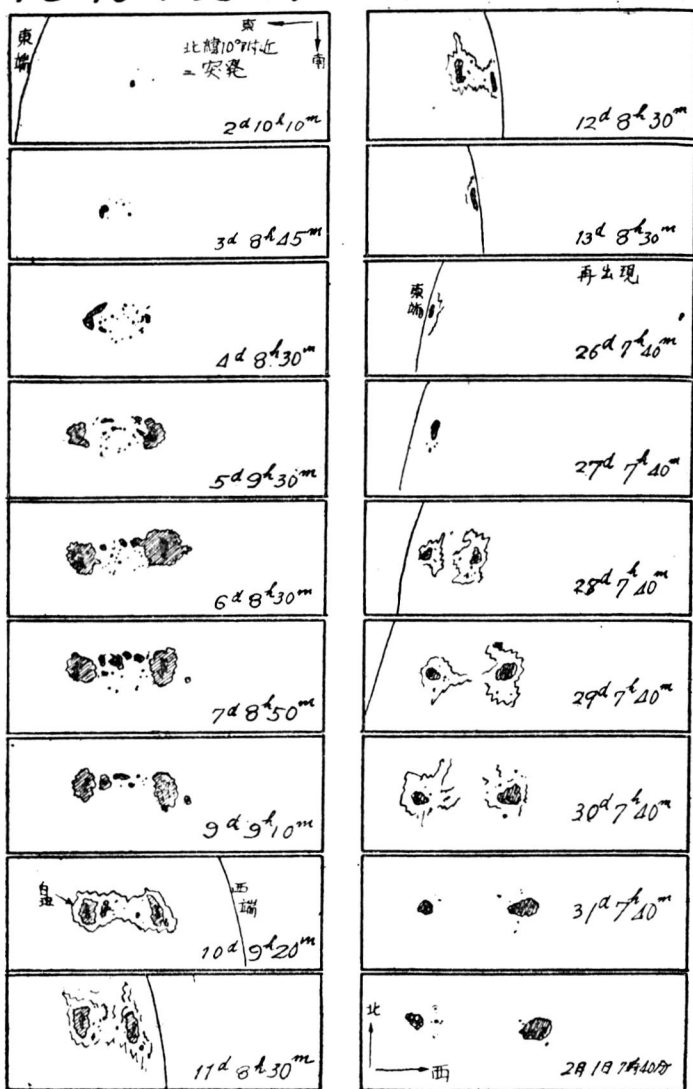 東端
東
南
北緯10°附近
ニ突発
2d 10h 10m
3d 8h 45m
4d 8h 30m
5d 9h 30m
6d 8h 30m
7d 8h 50m
9d 9h 10m
白斑
西端
10d 9h 20m
11d 8h 30m
12d 8h 30m
13d 8h 30m
再出現
東端
26d 7h 40m
27d 7h 40m
28d 7h 40m
29d 7h 40m
30d 7h 40m
31d 7h 40m
北
西
2月1日7時40分